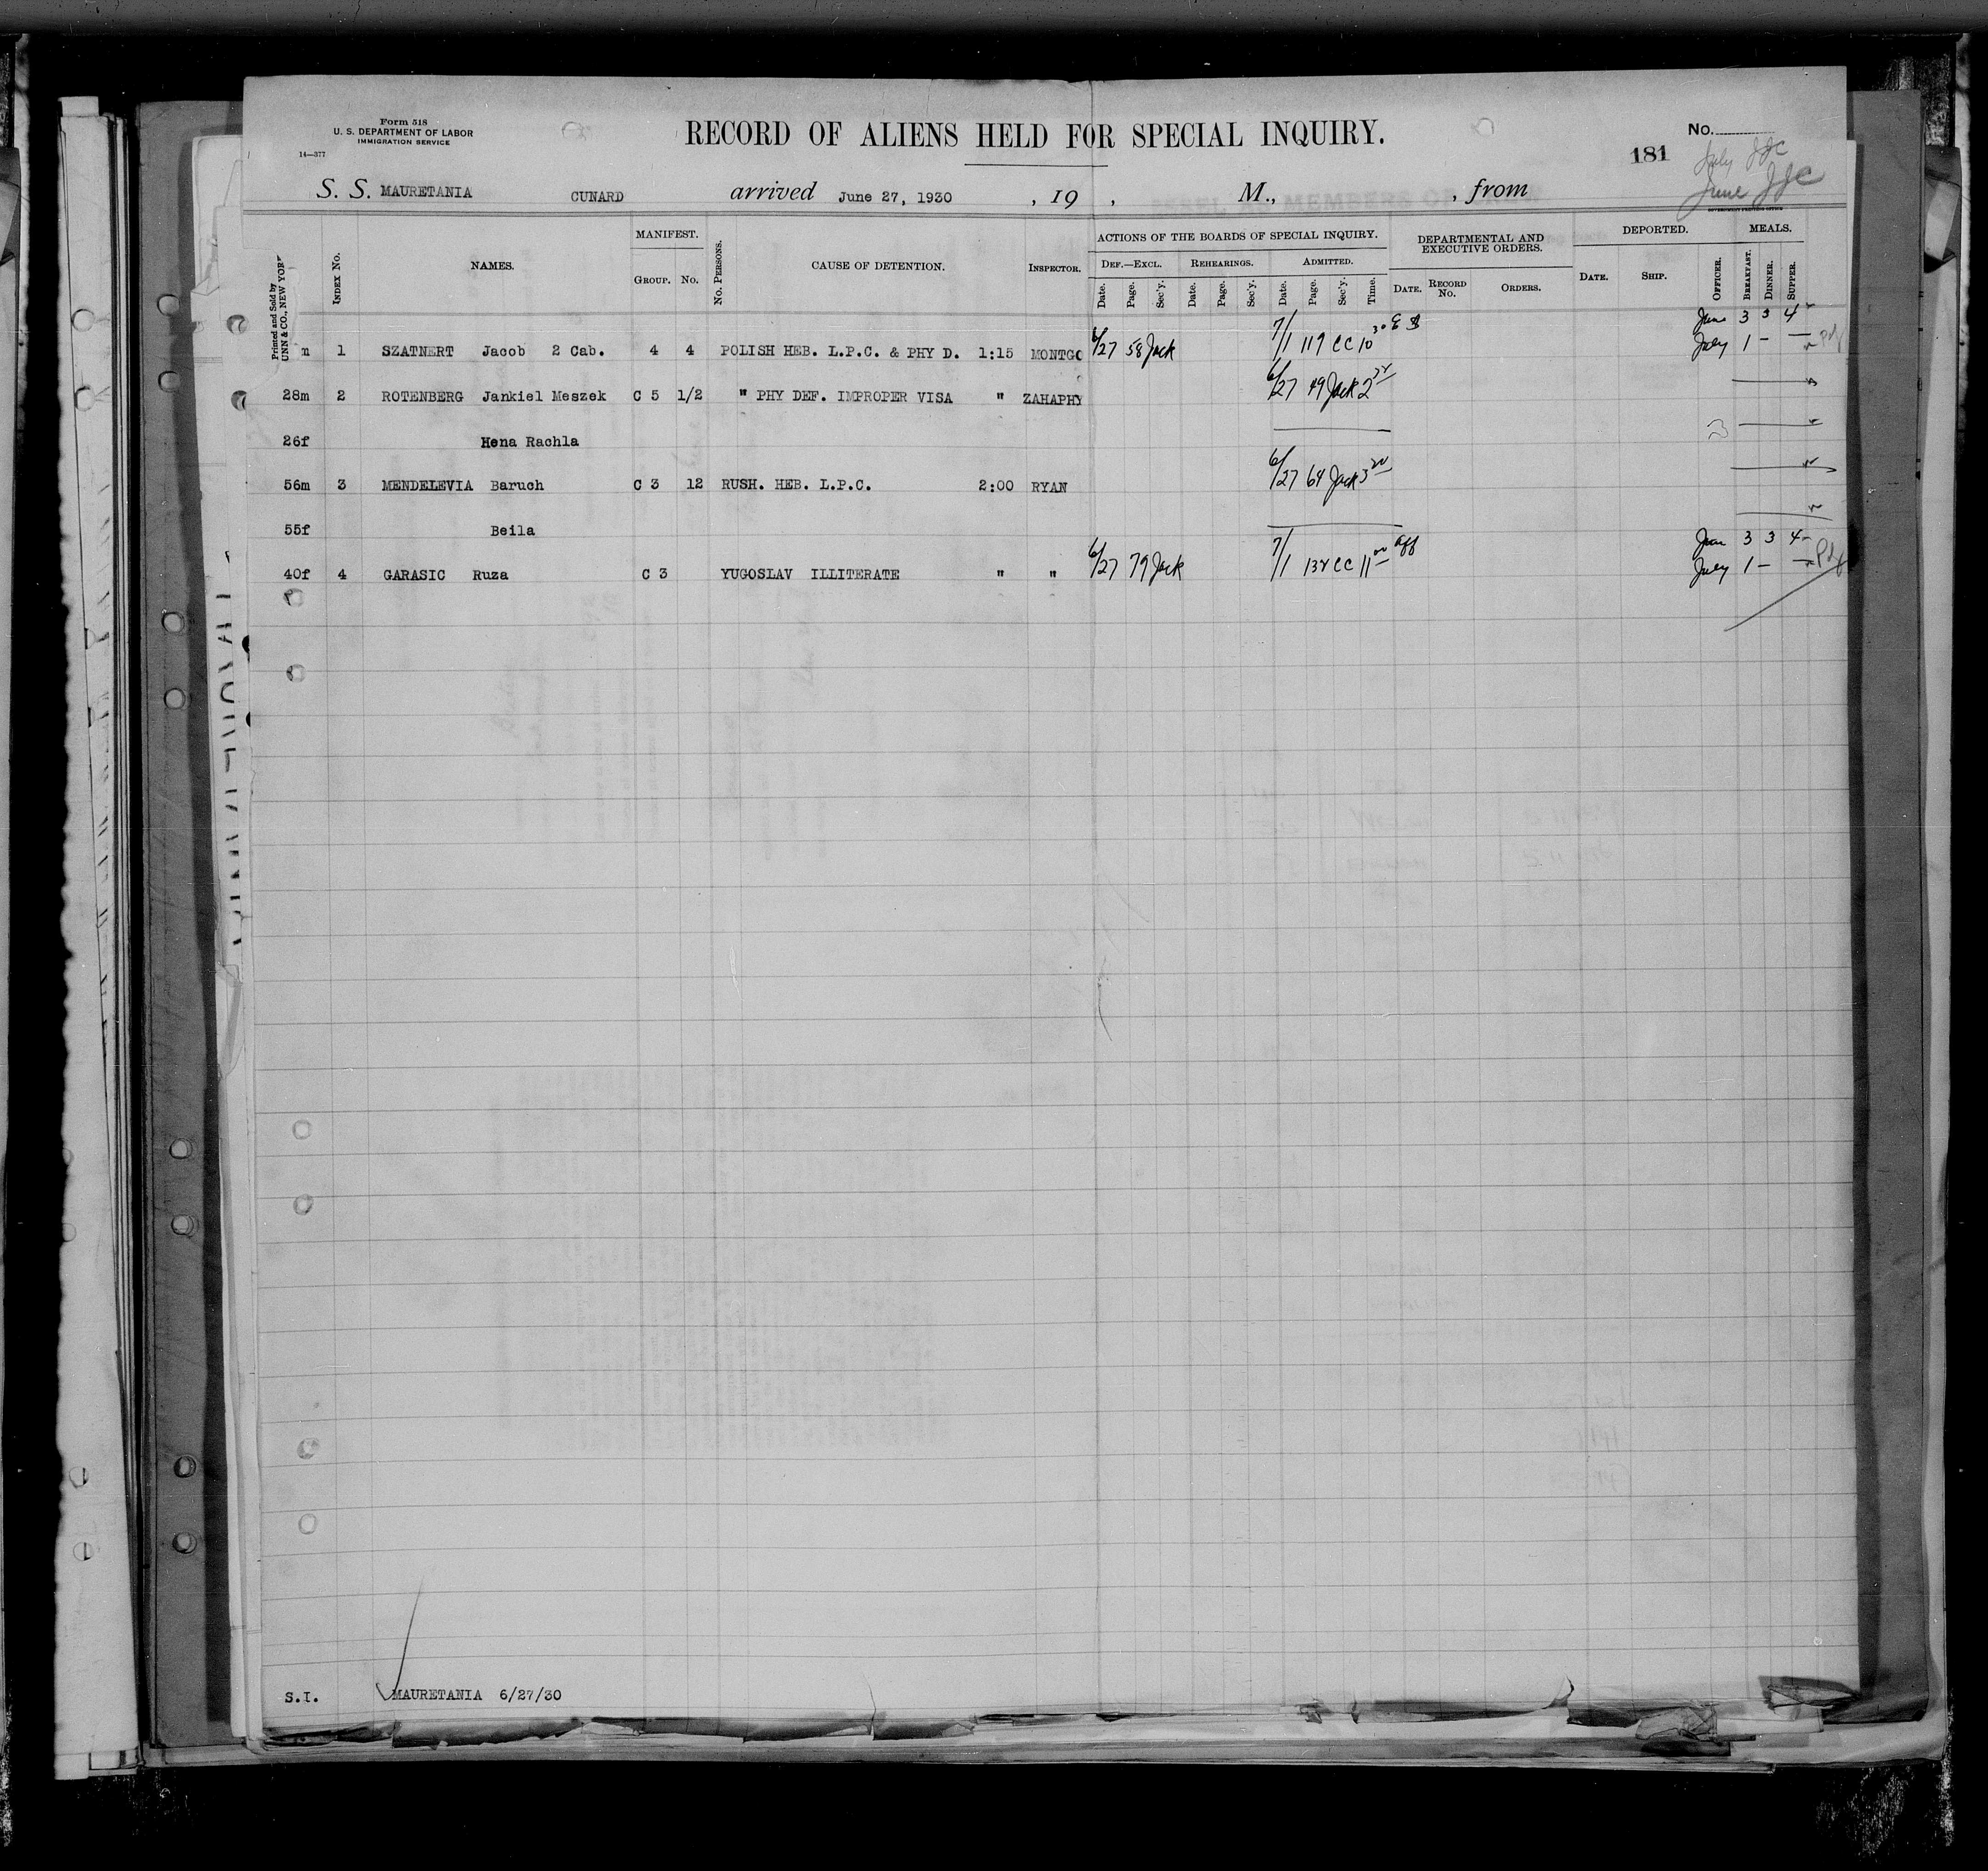 Form 518
U. S. DEPARTMENT OF LABOR
IMMIGRATION SERVICE
14—377
RECORD OF ALIENS HELD FOR SPECIAL INQUIRY.
No.
181
July JJC
June JJC
S. S. MAURETANIA CUNARD arrived June 27, 1930 , 19 , M., , from
GOVERNMENT PRINTING OFFICE
Printed and Sold by
UNN & CO., NEW YORK
INDEX No. NAMES. MANIFEST. GROUP. No. No. PERSONS. CAUSE OF DETENTION. INSPECTOR.
ACTIONS OF THE BOARDS OF SPECIAL INQUIRY.
DEF.—EXCL. REHEARINGS. ADMITTED.
Date. Page. Sec'y. Date. Page. Sec'y. Date. Page. Sec'y. Time.
DEPARTMENTAL AND
EXECUTIVE ORDERS.
DATE. RECORD No. ORDERS.
DEPORTED.
DATE. SHIP. OFFICER.
MEALS.
BREAKFAST. DINNER. SUPPER.
June 3 3 4
m 1 SZATNERT Jacob 2 Cab. 4 4 POLISH HEB. L.P.C. & PHY D. 1:15 MONTGO 6/27 58 Jack 7/1 119 CC 10 30 July 1 — —
28m 2 ROTENBERG Jankiel Meszek C 5 1/2 " PHY DEF. IMPROPER VISA " ZAHAPHY 6/27 49 Jack 2
26f Hena Rachla
56m 3 MENDELEVIA Baruch C 3 12 RUSH. HEB. L.P.C. 2:00 RYAN 6/27 64 Jack 3
55f Beila
June 3 3 4
40f 4 GARASIC Ruza C 3 YUGOSLAV ILLITERATE " " 6/27 79 Jack 7/1 132 CC 11 00 aff July 1 — —
S.I. MAURETANIA 6/27/30